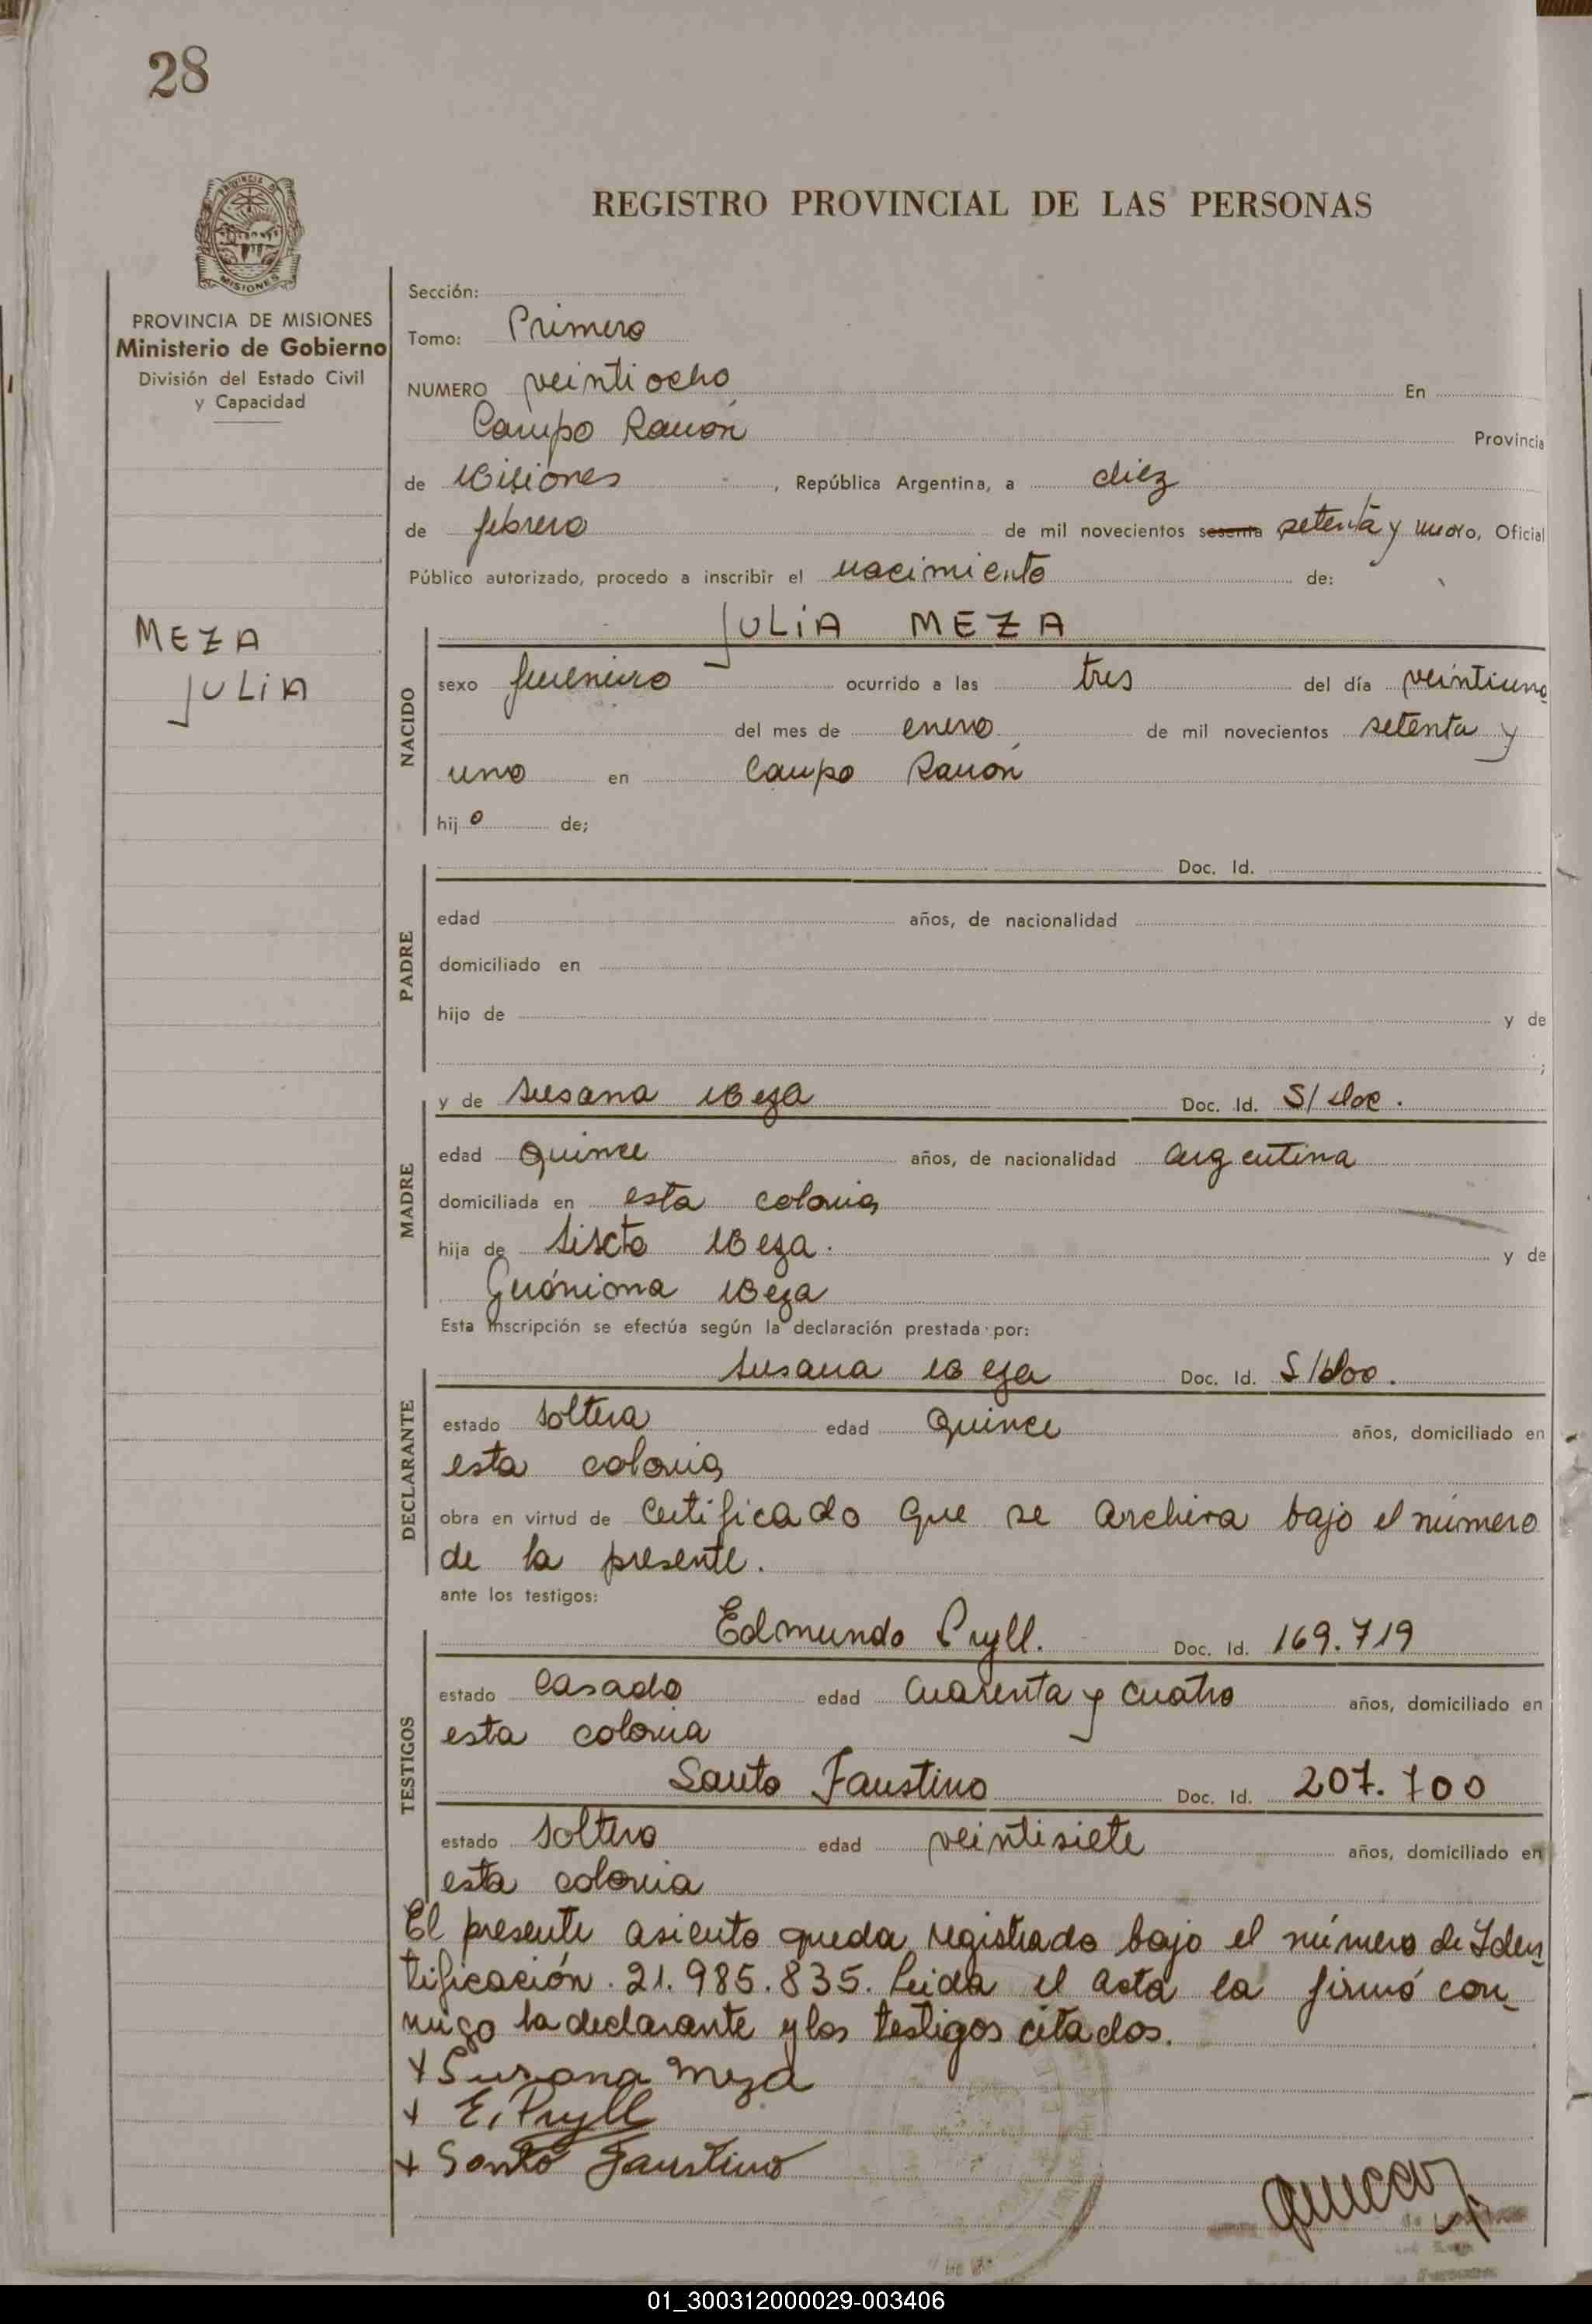 28
PROVINCIA DE
MISIONES
REGISTRO PROVINCIAL DE LAS PERSONAS
PROVINCIA DE MISIONES
Ministerio de Gobierno
División del Estado Civil
y Capacidad
MEZA
JULIA
Sección:
Tomo: Primero
NUMERO veintiocho En
Campo Ramón Provincia
de Misiones, República Argentina, a diez
de febrero de mil novecientos sesenta setenta y nuevo, Oficial
Público autorizado, procedo a inscribir el nacimiento de:
NACIDO
JULIA MEZA
sexo femenino ocurrido a las tres del día veintiuno
del mes de enero de mil novecientos setenta y
uno en Campo Ramón
hijo de;
PADRE
Doc. Id.
edad años, de nacionalidad
domiciliado en
hijo de y de
;
MADRE
y de Susana Meza Doc. Id. S/doc.
edad Quince años, de nacionalidad argentina
domiciliada en esta colonia
hija de Sixto Meza. y de
Gerónima Meza
Esta inscripción se efectúa según la declaración prestada por:
DECLARANTE
Susana Meza Doc. Id. S/doc.
estado soltera edad Quince años, domiciliado en
esta colonia
obra en virtud de Certificado que se archiva bajo el número
de la presente.
ante los testigos:
TESTIGOS
Edmundo Pryll. Doc. Id. 169.719
estado casado edad cuarenta y cuatro años, domiciliado en
esta colonia
Santo Faustino Doc. Id. 207.700
estado soltero edad veintisiete años, domiciliado en
esta colonia
El presente asiento queda registrado bajo el número de Iden
tificación. 21.985.835. Leida el acta la firmó con-
migo la declarante y los testigos citados.
+ Susana Meza
+ E, Pryll
+ Santo Faustino
01_300312000029-003406